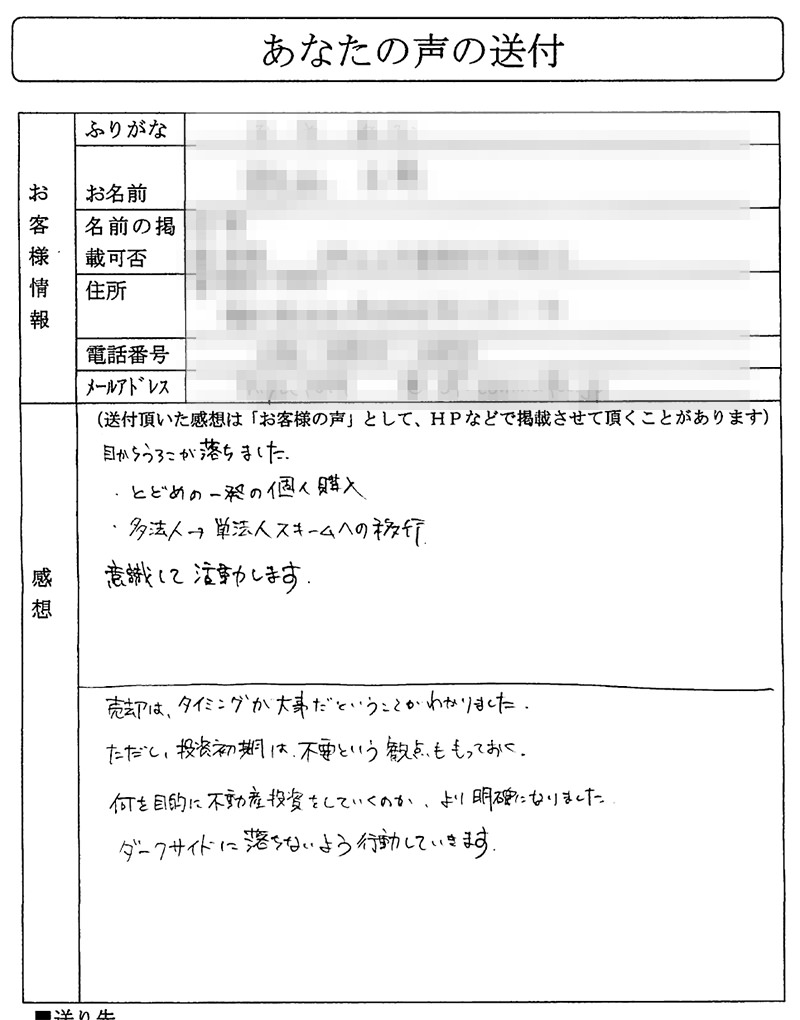 あなたの声の送付
お客様情報
ふりがな
お名前
名前の掲
載可否
住所
電話番号
ﾒｰﾙｱﾄﾞﾚｽ
感想
(送付頂いた感想は「お客様の声」として、ＨＰなどで掲載させて頂くことがあります)
目からうろこが落ちました.
・とどめの一発の個人購入
・多法人→単法人スキームへの移行.
意識して活動します.
売却は、タイミングが大事だということがわかりました.
ただし、投資初期は、不要という観点ももっておく.
何を目的に不動産投資をしていくのか、より明確になりました.
ダークサイドに落ちないよう行動していきます.
■送り先